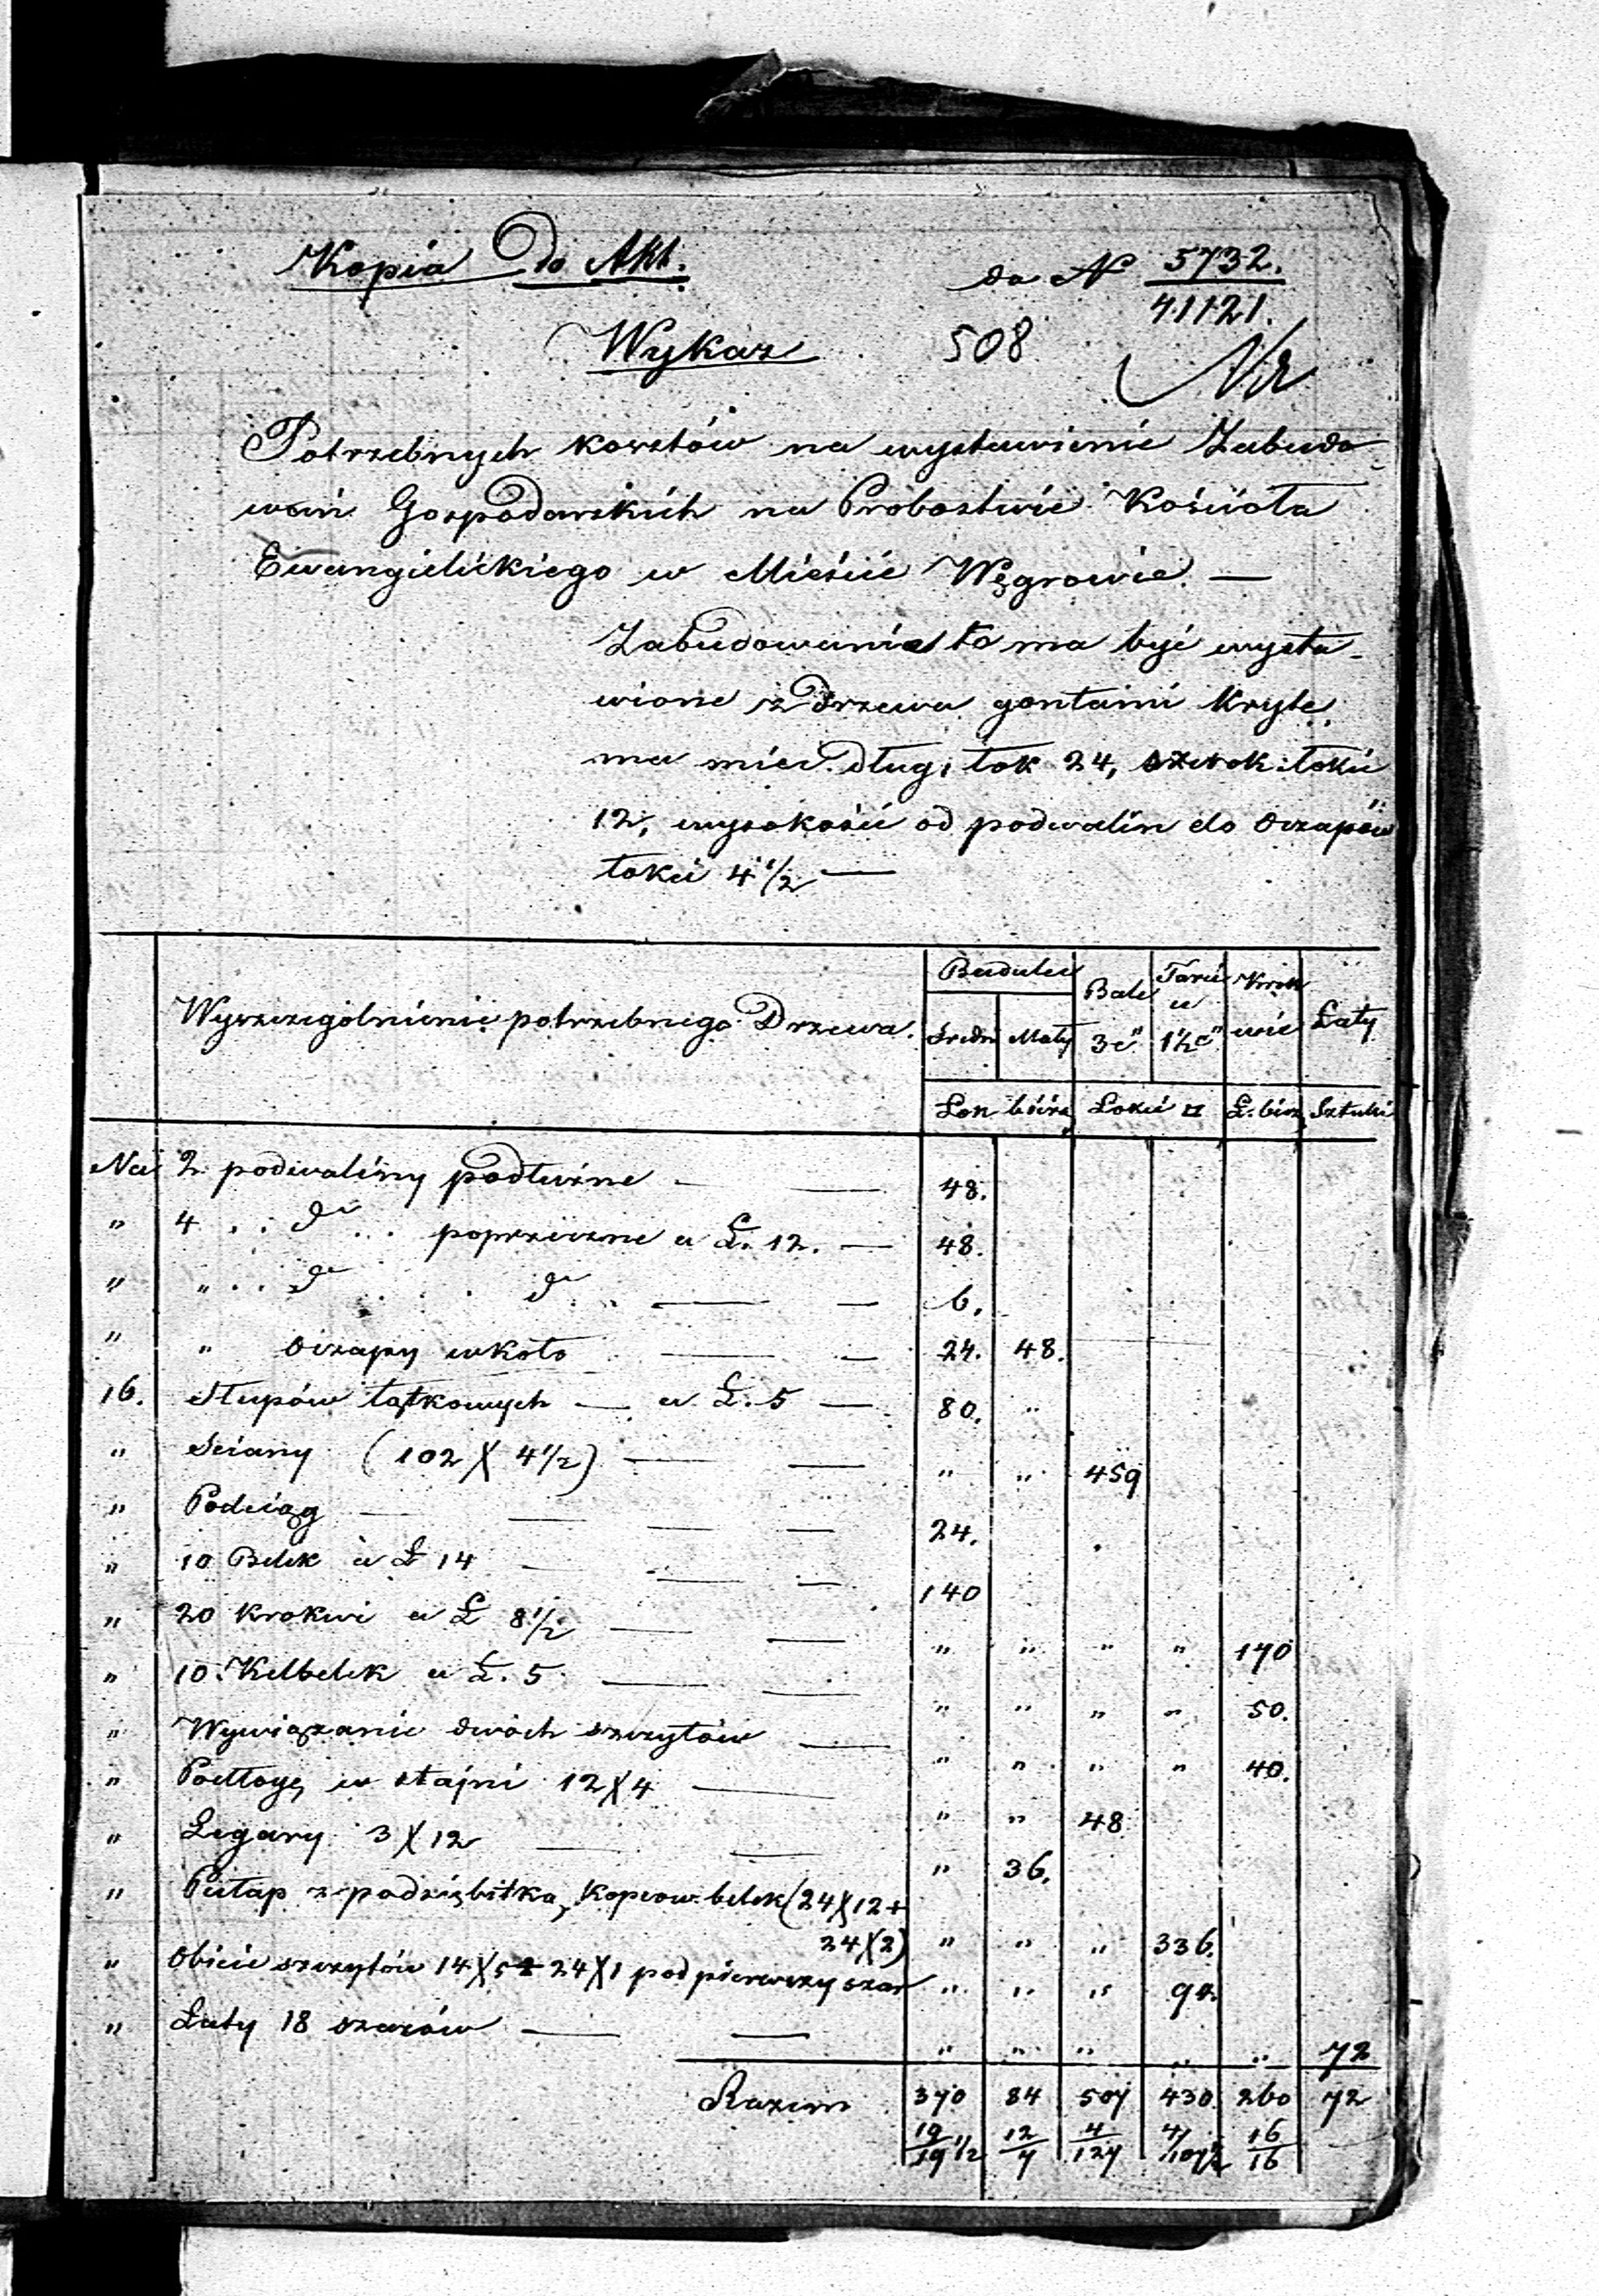 Kopia do Akt.
do N 5732.
41121.
Wykaz
508
Potrzebnych kosztów na wystawienie Zabudo
wań Gospodarskich na Probostwie Kościoła
Ewangielickiego w Mieście Węgrowie. —
Zabudowanie to ma być wysta-
wione z drzewa gontami kryte,
ma mieć dług. łok 24, szerok: łokci
12, wysokości od podwalin do oczapów
łokci 4 1/2 —
Wyszczególnienie potrzebnego Drzewa. Budulec Bale 3 c" Tarci a 1 1/2 c" Krok wie Łaty
Średni Mały
Łok bieżą Łokci □ Ł. bież Sztuki
Na 2 podwaliny podłużne — — 48.
" 4 . . do . . poprzeczne a Ł. 12. — 48.
" " . . do . . do . . — — 6.
" " Oczapy wkoło — — 24. 48.
16. Słupów łątkowych — a Ł. 5 — 80. "
" Ściany (102 X 4 1/2) — — " " 459
" Podciąg — — — — 24.
" 10 Belek a Ł 14 — — — 140
" 20 Krokwi a Ł 8 1/2 — — " " " " 170
" 10. Kelbelek a Ł. 5 — — " " " " 50.
" Wywiązanie dwóch szczytów — " " " " 40.
" Podłogę w stajni 12 X 4 — " " 48
" Legary 3 X 12 — — " 36.
" Pułap z podziębitką, Koprow. belek (24 X 12 +
24 X 2) " " " 336.
" Obicie szczytów 14 X 5 + 24 X 1 pod pierwszy szar " " " 94.
" Łaty 18 szarów — — " " " " " 72
Razem 370 84 507 430 260 72
19/19 1/2 12/7 4/127 4/107 1/2 16/16